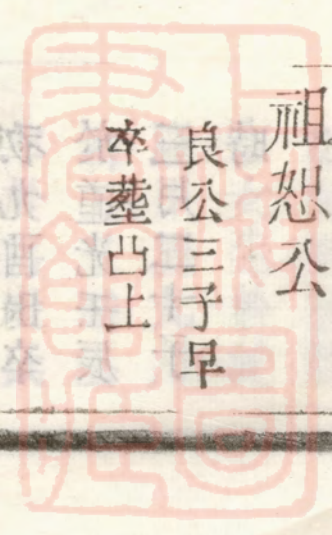 祖恕公
良公三子早
卒塟凸上